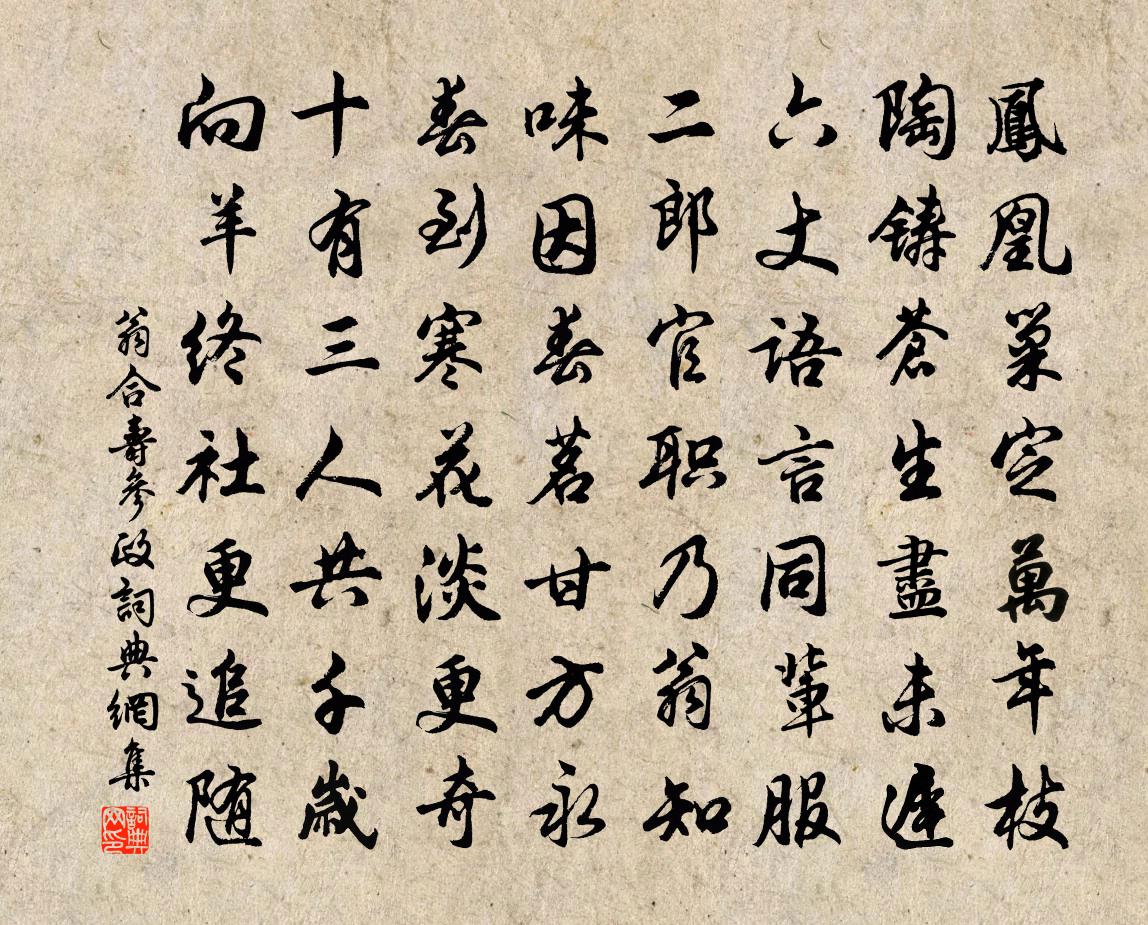 鳳凰巢定萬年枝
陶鑄蒼生盡未遲
六丈語言同輩服
二郎官职乃翁知
味因春茗甘方永
春到寒花淡更奇
十有三人共千歲
向羊終社更追随
翁合壽參政詞典網集
詞典网印